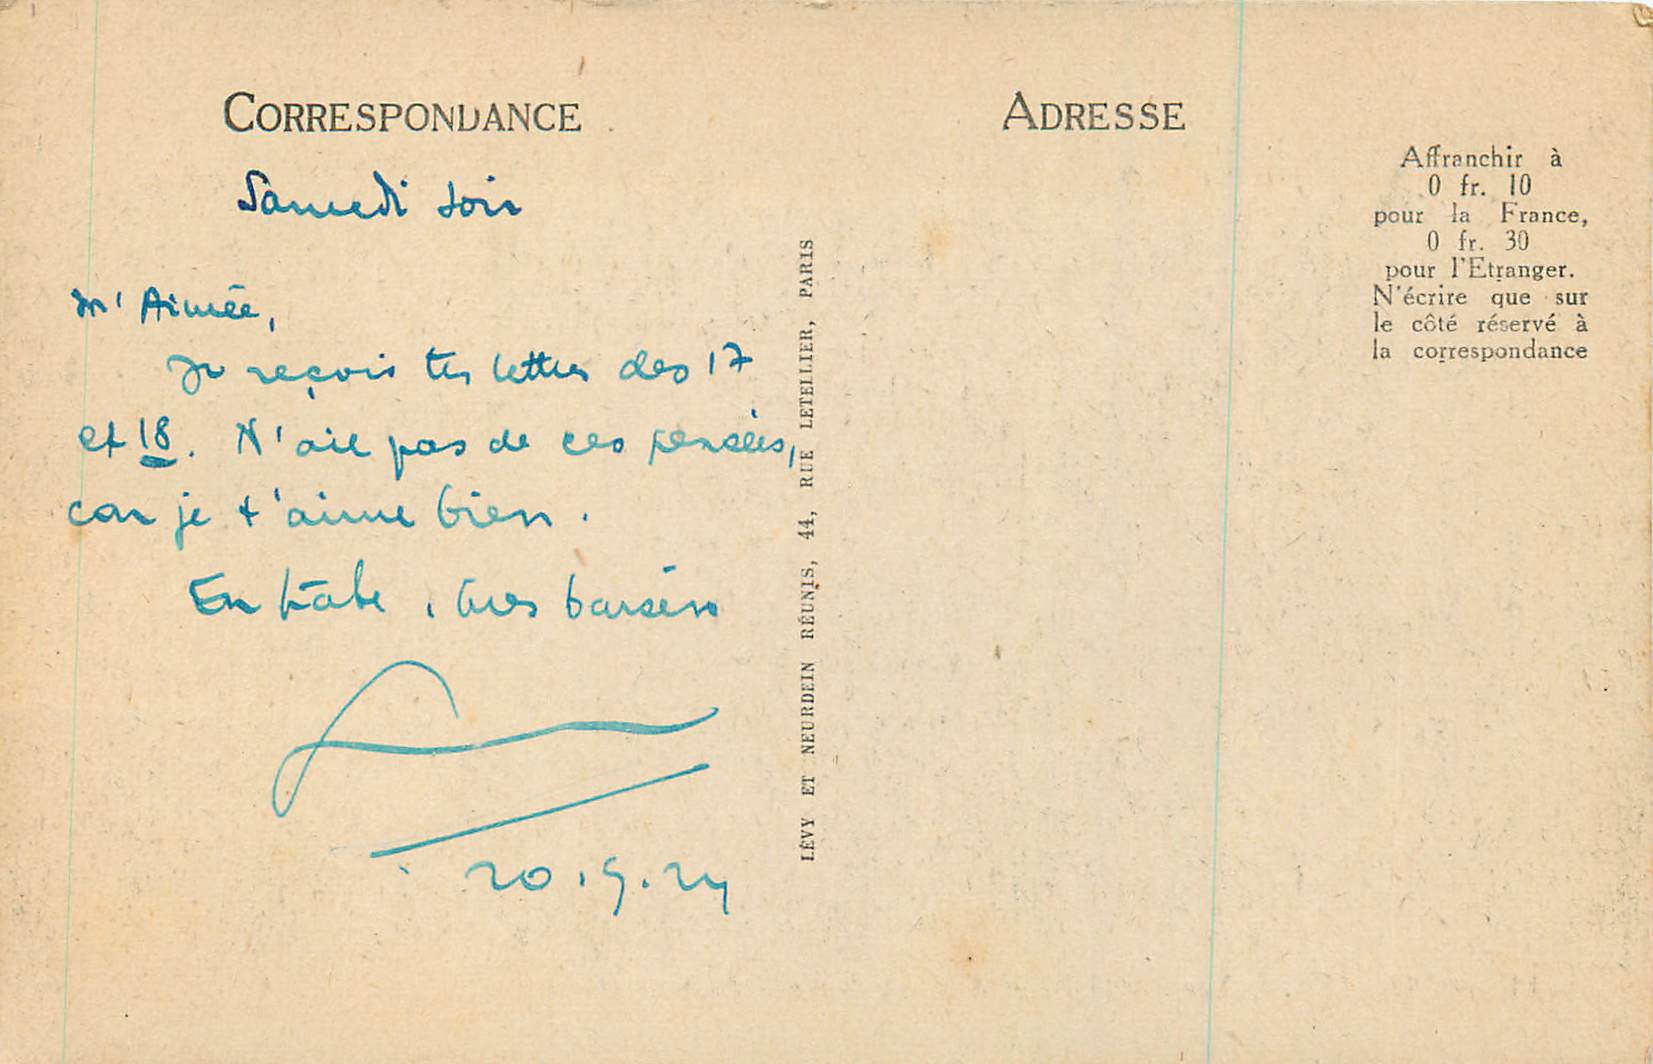 CORRESPONDANCE
Samedi soir
M' Aimée,
Je reçois tes lettres des 17
et 18. N'aie pas de ces pensées,
car je t'aime bien.
En hâte, bons baisers
20.9.24
LÉVY ET NEURDEIN RÉUNIS, 44, RUE LETELLIER, PARIS
ADRESSE
Affranchir à
0 fr. 10
pour la France,
0 fr. 30
pour l'Etranger.
N'écrire que sur
le côté réservé à
la correspondance